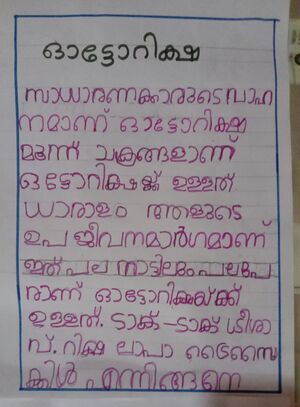 ഓട്ടോറിക്ഷ
സാധാരണക്കാരുടെ വാഹ
നമാണ് ഓട്ടോറിക്ഷ
മൂന്ന് ചക്രങ്ങളാണ്
ഒട്ടോറിക്ഷക്ക് ഉള്ളത്
ധാരാളം ആളുടെ
ഉപ ജീവനമാർഗമാണ്
ഇത് പല നാട്ടിലും പലപേ
രാണ് ഓട്ടോറിക്ഷയ്ക്ക്
ഉള്ളത്. ടാക് -ടാക് ശീശാ
വ്. റിക്ഷ ലാപാ ട്രൈസൈ
ക്കിൾ എന്നിങ്ങനെ